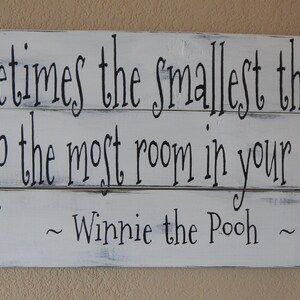 etimes the smallest th
o the most room in your
~ Winnie the Pooh ~